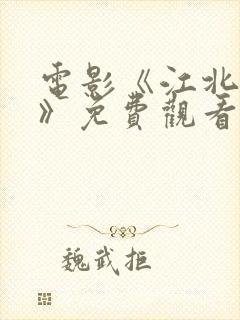 電影《江北
》免費觀看
魏武拒